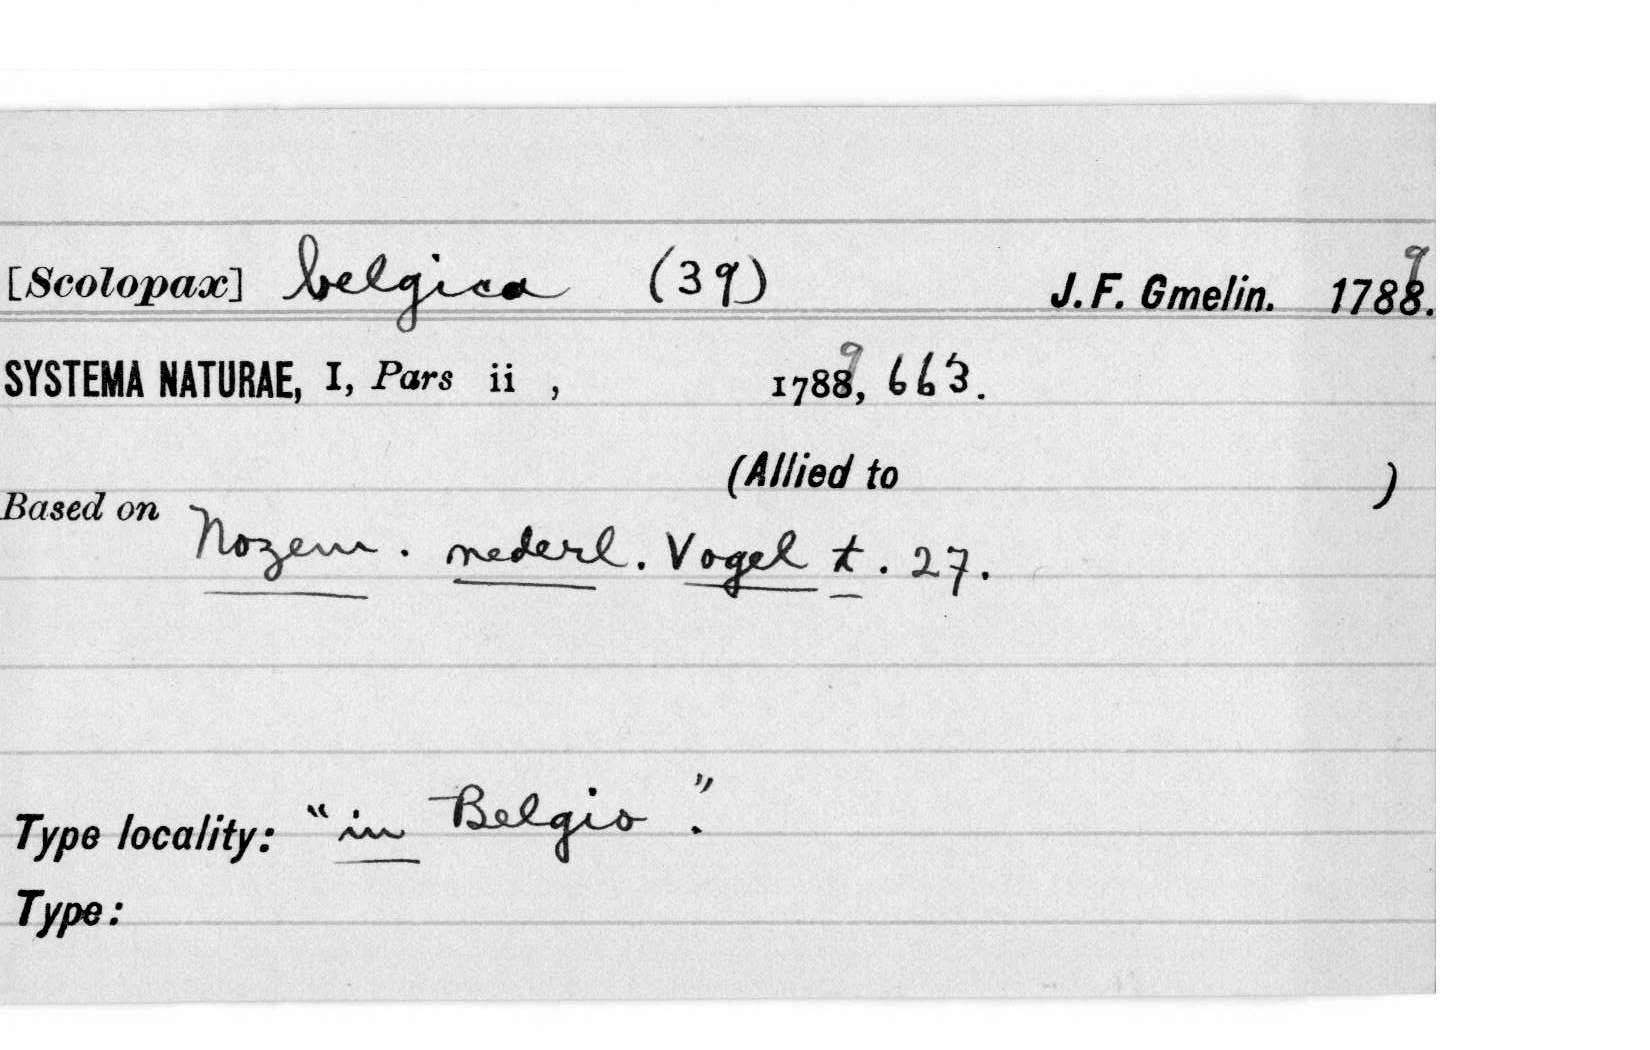 [Scolopax] belgica (39) J. F. Gmelin. 1788. 9
SYSTEMA NATURAE, I, Pars ii , 1788, 9 663.
(Allied to )
Based on Nozem. nederl. Vogel t. 27.
Type locality: "in Belgio."
Type: